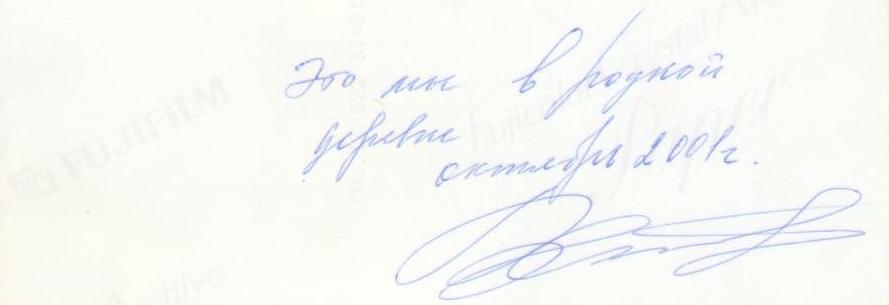 Это мы в родной
деревне
октябрь 2001г.
FUJIFILM
Fujicolor Crystal Archive
Paper
Archive